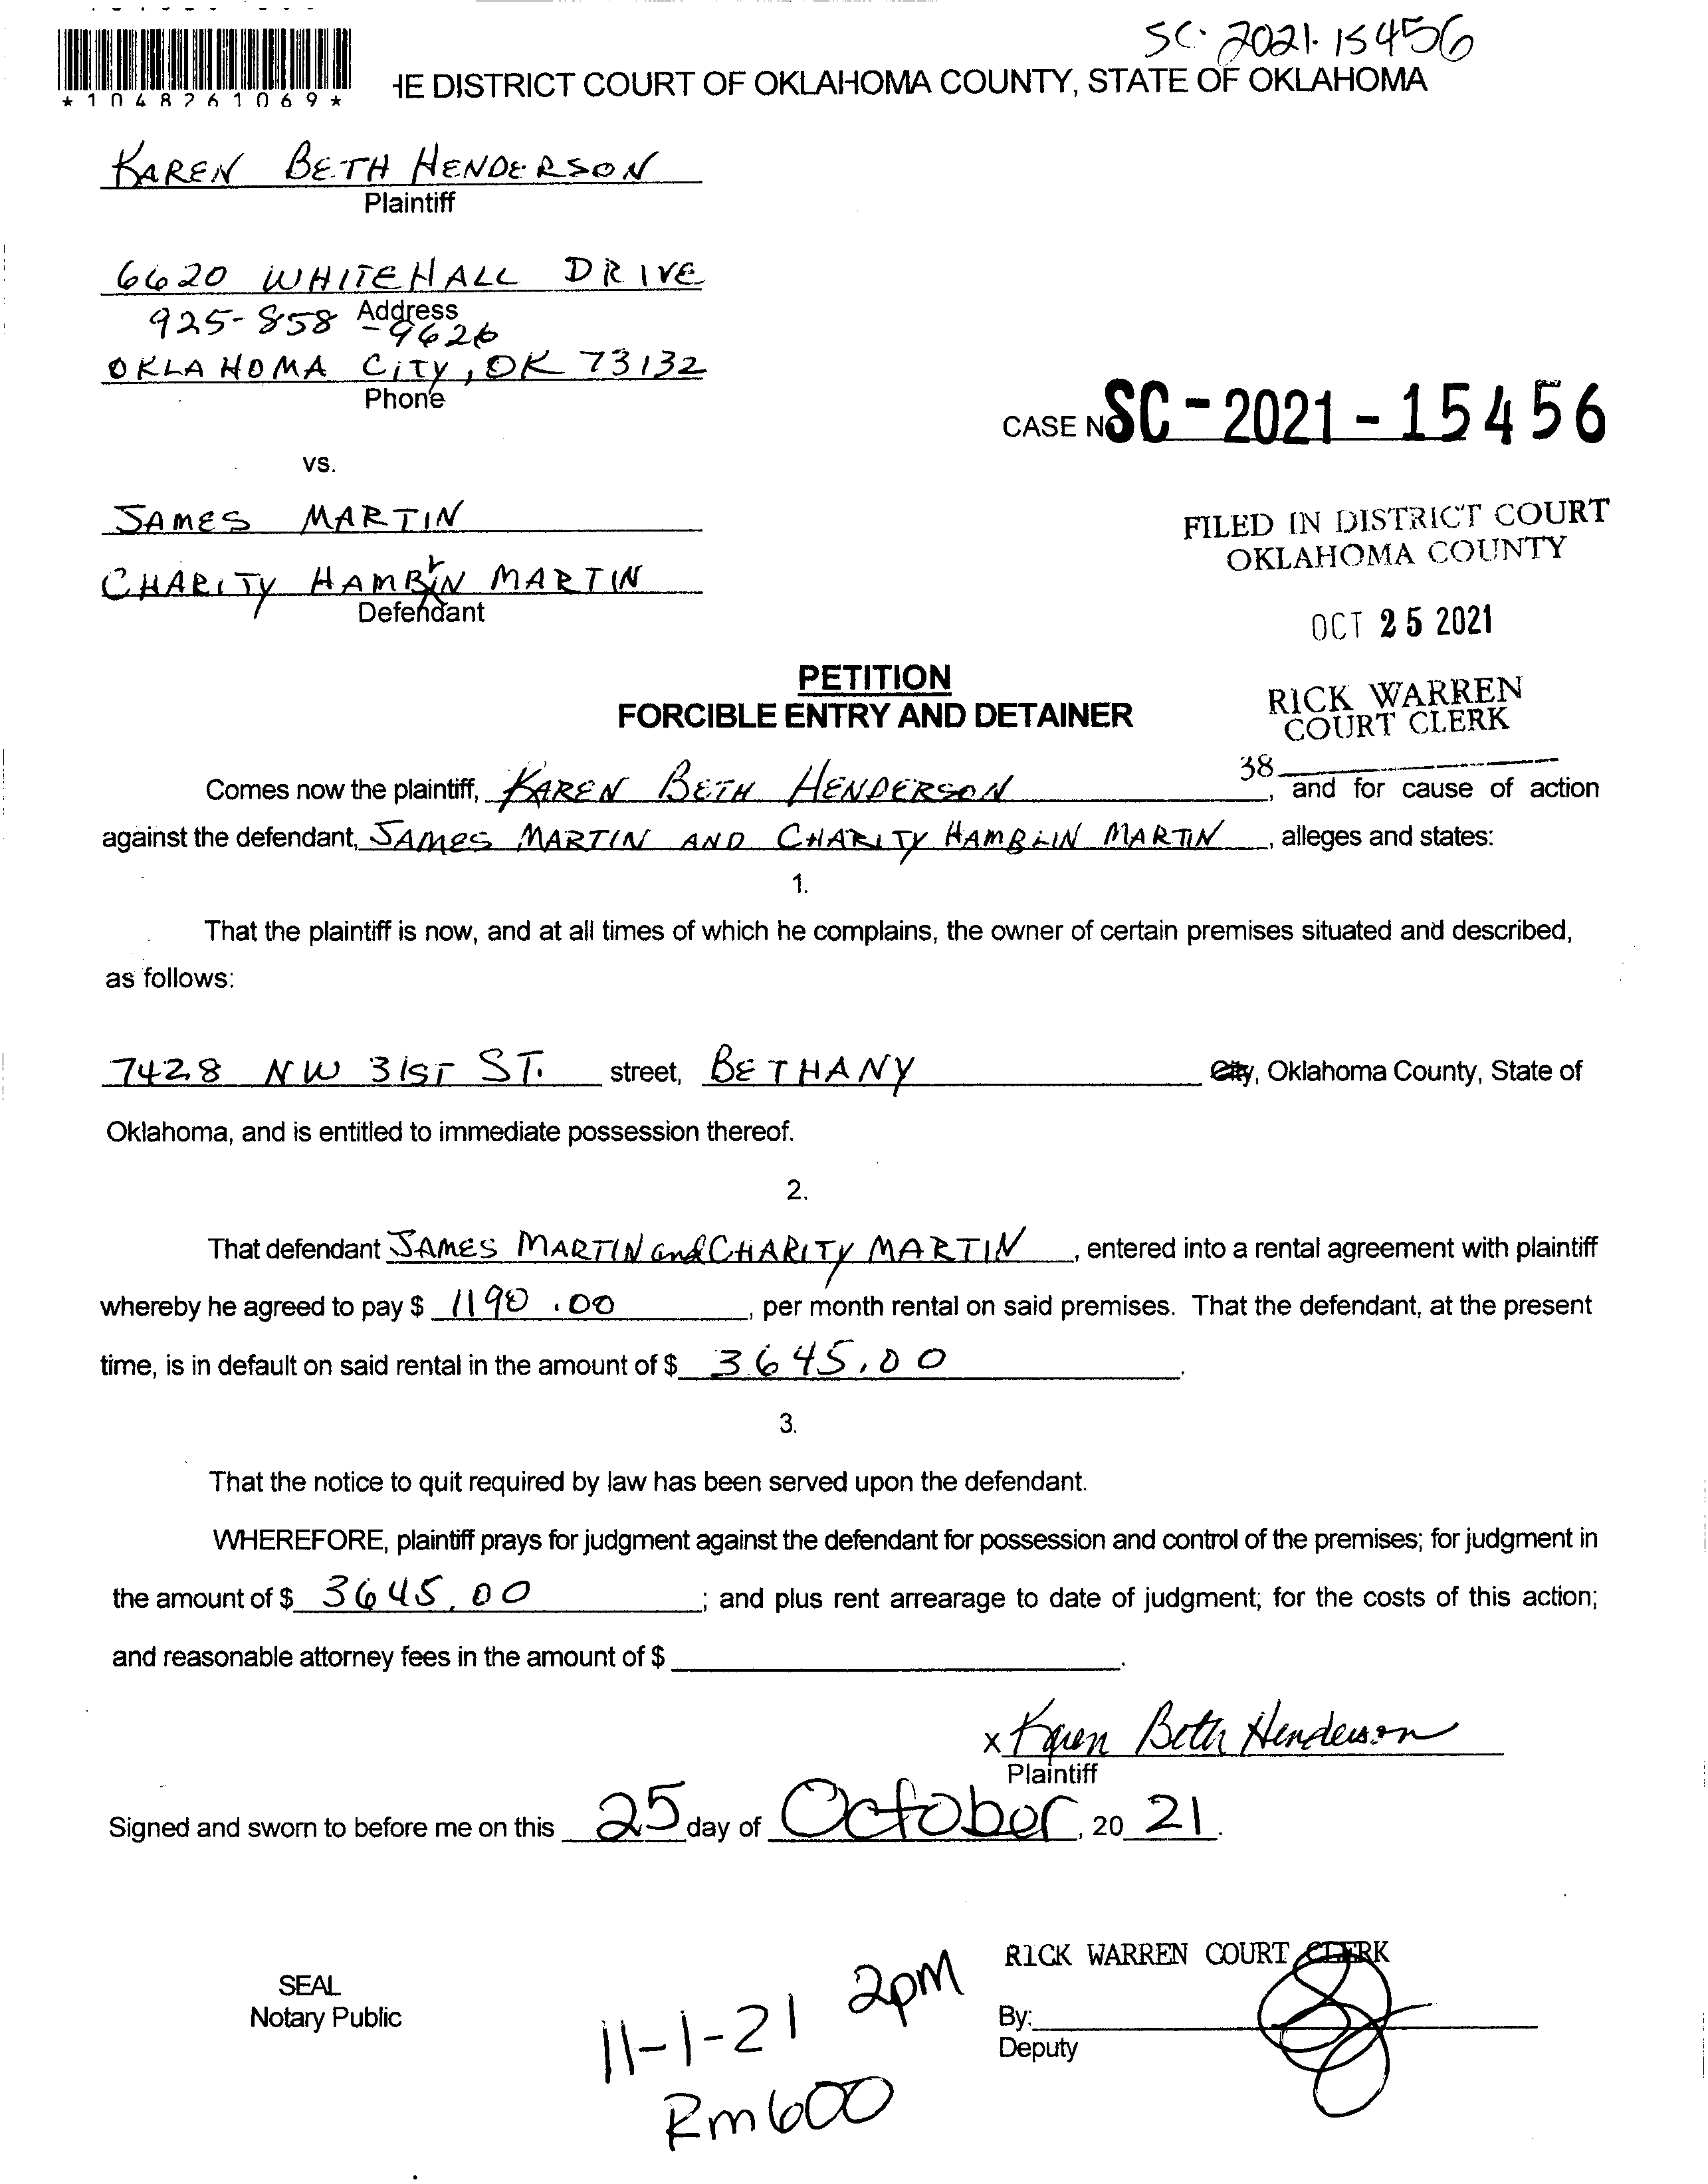 SC-2021-15456
*1048261069*
HE DISTRICT COURT OF OKLAHOMA COUNTY, STATE OF OKLAHOMA
KAREN BETH HENDERSON
Plaintiff
6620 WHITEHALL DRIVE
Address
925-858-9626
OKLAHOMA CITY, OK 73132
Phone
CASE NO SC-2021-15456
vs.
JAMES MARTIN
FILED IN DISTRICT COURT
OKLAHOMA COUNTY
CHARITY HAMBLIN MARTIN
Defendant
OCT 25 2021
PETITION
FORCIBLE ENTRY AND DETAINER
RICK WARREN
COURT CLERK
38
Comes now the plaintiff, KAREN BETH HENDERSON, and for cause of action
against the defendant, JAMES MARTIN AND CHARITY HAMBLIN MARTIN, alleges and states:
1.
That the plaintiff is now, and at all times of which he complains, the owner of certain premises situated and described,
as follows:
7428 NW 31ST ST. street, BETHANY City, Oklahoma County, State of
Oklahoma, and is entitled to immediate possession thereof.
2.
That defendant JAMES MARTIN and CHARITY MARTIN, entered into a rental agreement with plaintiff
whereby he agreed to pay $ 1190.00, per month rental on said premises. That the defendant, at the present
time, is in default on said rental in the amount of $ 3645.00.
3.
That the notice to quit required by law has been served upon the defendant.
WHEREFORE, plaintiff prays for judgment against the defendant for possession and control of the premises; for judgment in
the amount of $ 3645.00; and plus rent arrearage to date of judgment; for the costs of this action;
and reasonable attorney fees in the amount of $
x Karen Beth Henderson
Plaintiff
Signed and sworn to before me on this 25 day of October, 20 21.
RICK WARREN COURT CLERK
SEAL
Notary Public
By:
Deputy
11-1-21 2pm
Rm 600